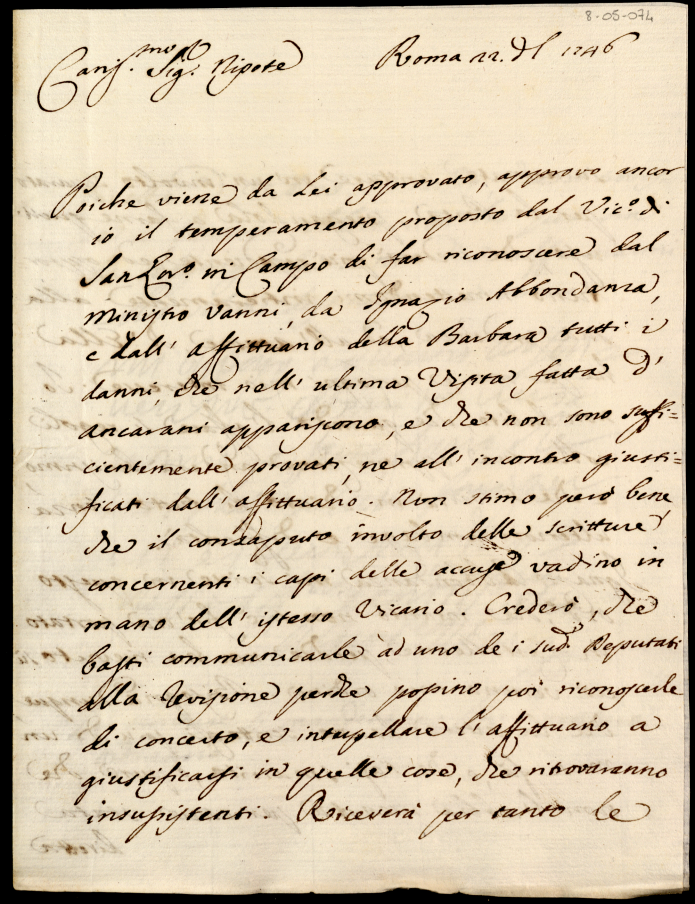 8-05-074
Caris.mo Sig.r Nipote Roma 22. 1746
Poiche viene da Lei approvato, approvo ancor
io il temperamento proposto dal Vic.o di
San Lor.o in Campo di far riconoscere dal
Ministro Vanni, da Ignazio Abbondanza,
e dall' affittuario della Barbara tutti i
danni, che nell' ultima Visita fatta d'
ancarani appariscono, e che non sono suffi=
cientemente provati, ne all' incontro giusti=
ficati dall' affittuario. Non stimo però bene,
che il consaputo involto delle scritture
concernenti i capi delle accuse vadino in
mano dell' istesso Vicario. Crederò, che
basti communicarle ad uno de i sud.i Deputati
alla revisione perche possino poi riconoscerle
di concerto, e interpellare l' affittuario a
giustificarsi in quelle cose, che ritrovaranno
insussistenti. Riceverà per tanto le